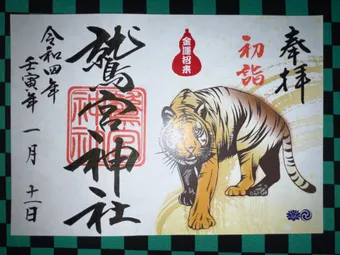 奉拝
初詣
金運招来
鷲宮神社
令和四年
壬寅年
一月十一日